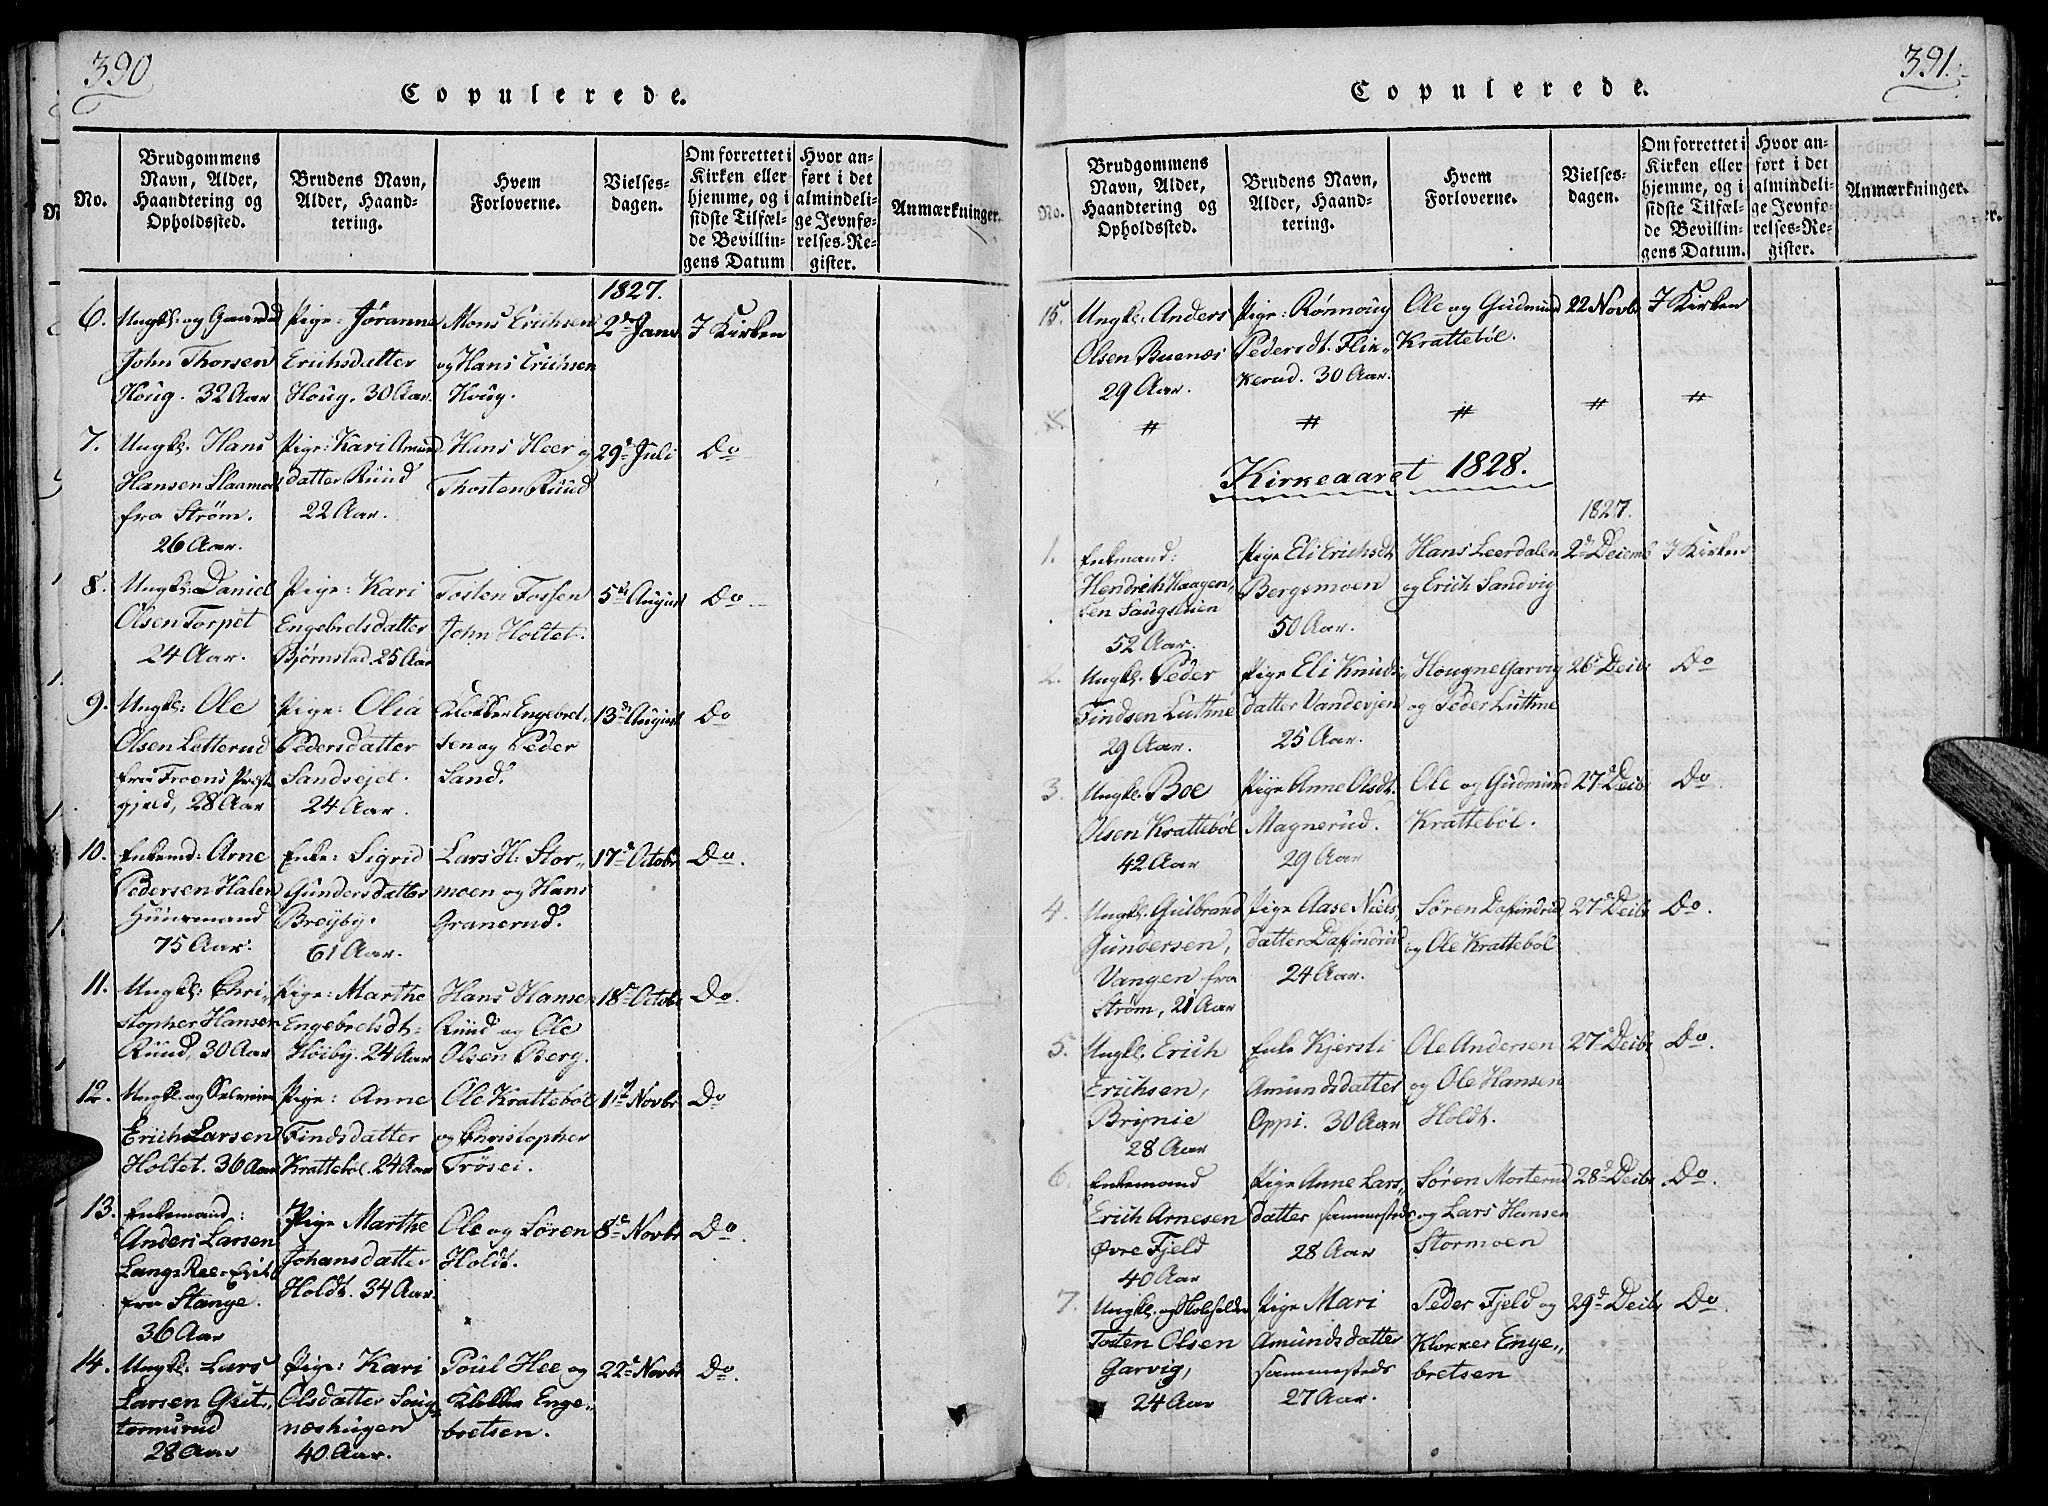 390
Copulerede.
No.
Brudgommens Navn, Alder, Haandtering og Opholdssted.
Brudens Navn, Alder, Haandtering.
Hvem Forloverne.
Vielsesdagen.
Om forrettet i Kirken eller hjemme, og i sidste Tilfælde Bevillingens Datum
Hvor anført i det almindelige Jevnførelses-Register.
Anmærkninger.
1827.
6. Ungkl: og Gaardmd John Thorsen Houg. 32 Aar
Pige: Jøranne Erichsdatter Houg, 30 Aar.
Mons Erichsen og Hans Erichsen Houg.
2de Janr
I Kirken
7. Ungkl. Hans Hansen Slaamoe fra Strøm. 26 Aar.
Pige: Kari Amund datter Ruud 22 Aar.
Hans Heer og Thosten Ruud
29d Juli
Do
8. Ungkl: Daniel Olsen Torpet 24 Aar.
Pige: Kari Engebretsdatter Bjørnstad. 25 Aar
Tosten Fossen John Holtet.
5te August
Do
9. Ungkl: Ole Olsen Letterud fra Froens Præste gjeld, 28 Aar
Pige: Olia Pedersdatter Sandsejet. 24 Aar.
Klokker Engebretsen og Peder Sand.
13d August
Do
10. Enkemd: Arne Pedersen Halen Huusmand 75 Aar.
Enke: Sigrid Gundersdatter Brøyby. 61 Aar.
Lars H. Stormoen og Hans Granerud.
17d Octobr
Do.
11. Ungkl: Christopher Hansen Ruud, 30 Aar
Pige: Marthe Engebretsdt: Høiby. 24 Aar
Hans Hansen Ruud og Ole Olsen Berg.
18d Octobr
Do.
12. Ungkl. og Selveier Erich Larsen Holtet. 36 Aar
Pige: Anne Findsdatter Krattebøl. 24 Aar
Ole Krattebøl og Christopher Trøsei.
1ste Novbr
Do
13. Enkemand: Anders Larsen Lange Ree-Eiet fra Stange. 36 Aar
Pige Marthe Johansdatter Holdt. 34 Aar.
Ole og Søren Holdt.
8de Novbr
Do.
14. Ungkl. Lars Larsen Guttermsrud 28 Aar
Pige: Kari Olsdatter Sougnæshugen 40 Aar.
Poul Hee og Klokker Engebretsen.
22d Novbr
Do.
391.
Copulerede.
No.
Brudgommens Navn, Alder, Haandtering og Opholdssted.
Brudens Navn, Alder, Haandtering.
Hvem Forloverne.
Vielsesdagen.
Om forrettet i Kirken eller hjemme, og i sidste Tilfælde Bevillingens Datum.
Hvor anført i det almindelige Jevnførelses-Register.
Anmærkninger.
15. Ungkl: Anders Olsen Buenæs 29 Aar.
Pige: Rønnoug Pedersdt. Flikkerud. 30 Aar.
Ole og Gudmund Krattebøl.
22 Novbr
I Kirken
Kirkeaaret 1828.
1827.
1. Enkemand: Hendrich Haagensen Saugstuen 52 Aar.
Pige Eli Erichsdt Bergsmoen 50 Aar.
Hans Leerdalen og Erich Sandvig
2d Decemb
I Kirken
2. Ungkl. Peder Findsen Luthne 29 Aar.
Pige Eli Knudsdatter Vandevjen 25 Aar.
Hougne Garvig og Peder Luthne
26d Decbr
Do
3. Ungkl. Boe Olsen Krattebøl 42 Aar
Pige Anne Olsdt. Magnerud. 29 Aar
Ole og Gudmund Krattebøl.
27d Decbr
Do.
4. Ungkl. Gulbrand Gundersen, Vangen fra Strøm, 21 Aar
Pige Aase Nielsdatter Dafindrud 24 Aar.
Søren Dafindrud og Ole Krattebøl
27d Decbr
Do.
5. Ungkl. Erich Erichsen, Brynie 28 Aar
Enke Kjersti Amundsdatter Oppi. 30 Aar
Ole Andersen og Ole Hansen Holdt.
27d Decbr
Do.
6. Enkemand Erich Arnesen Øvre Fjeld 40 Aar
Pige Anne Larsdatter sammesteds 28 Aar
Søren Morterud og Lars Hansen Stormoen
28d Decbr
Do.
7. Ungkl. Tosten Olsen Garvig, 24 Aar
Pige Mari Amundsdatter sammesteds 27 Aar.
Peder Fjeld og Klokker Engebretsen
29d Decbr
Do.